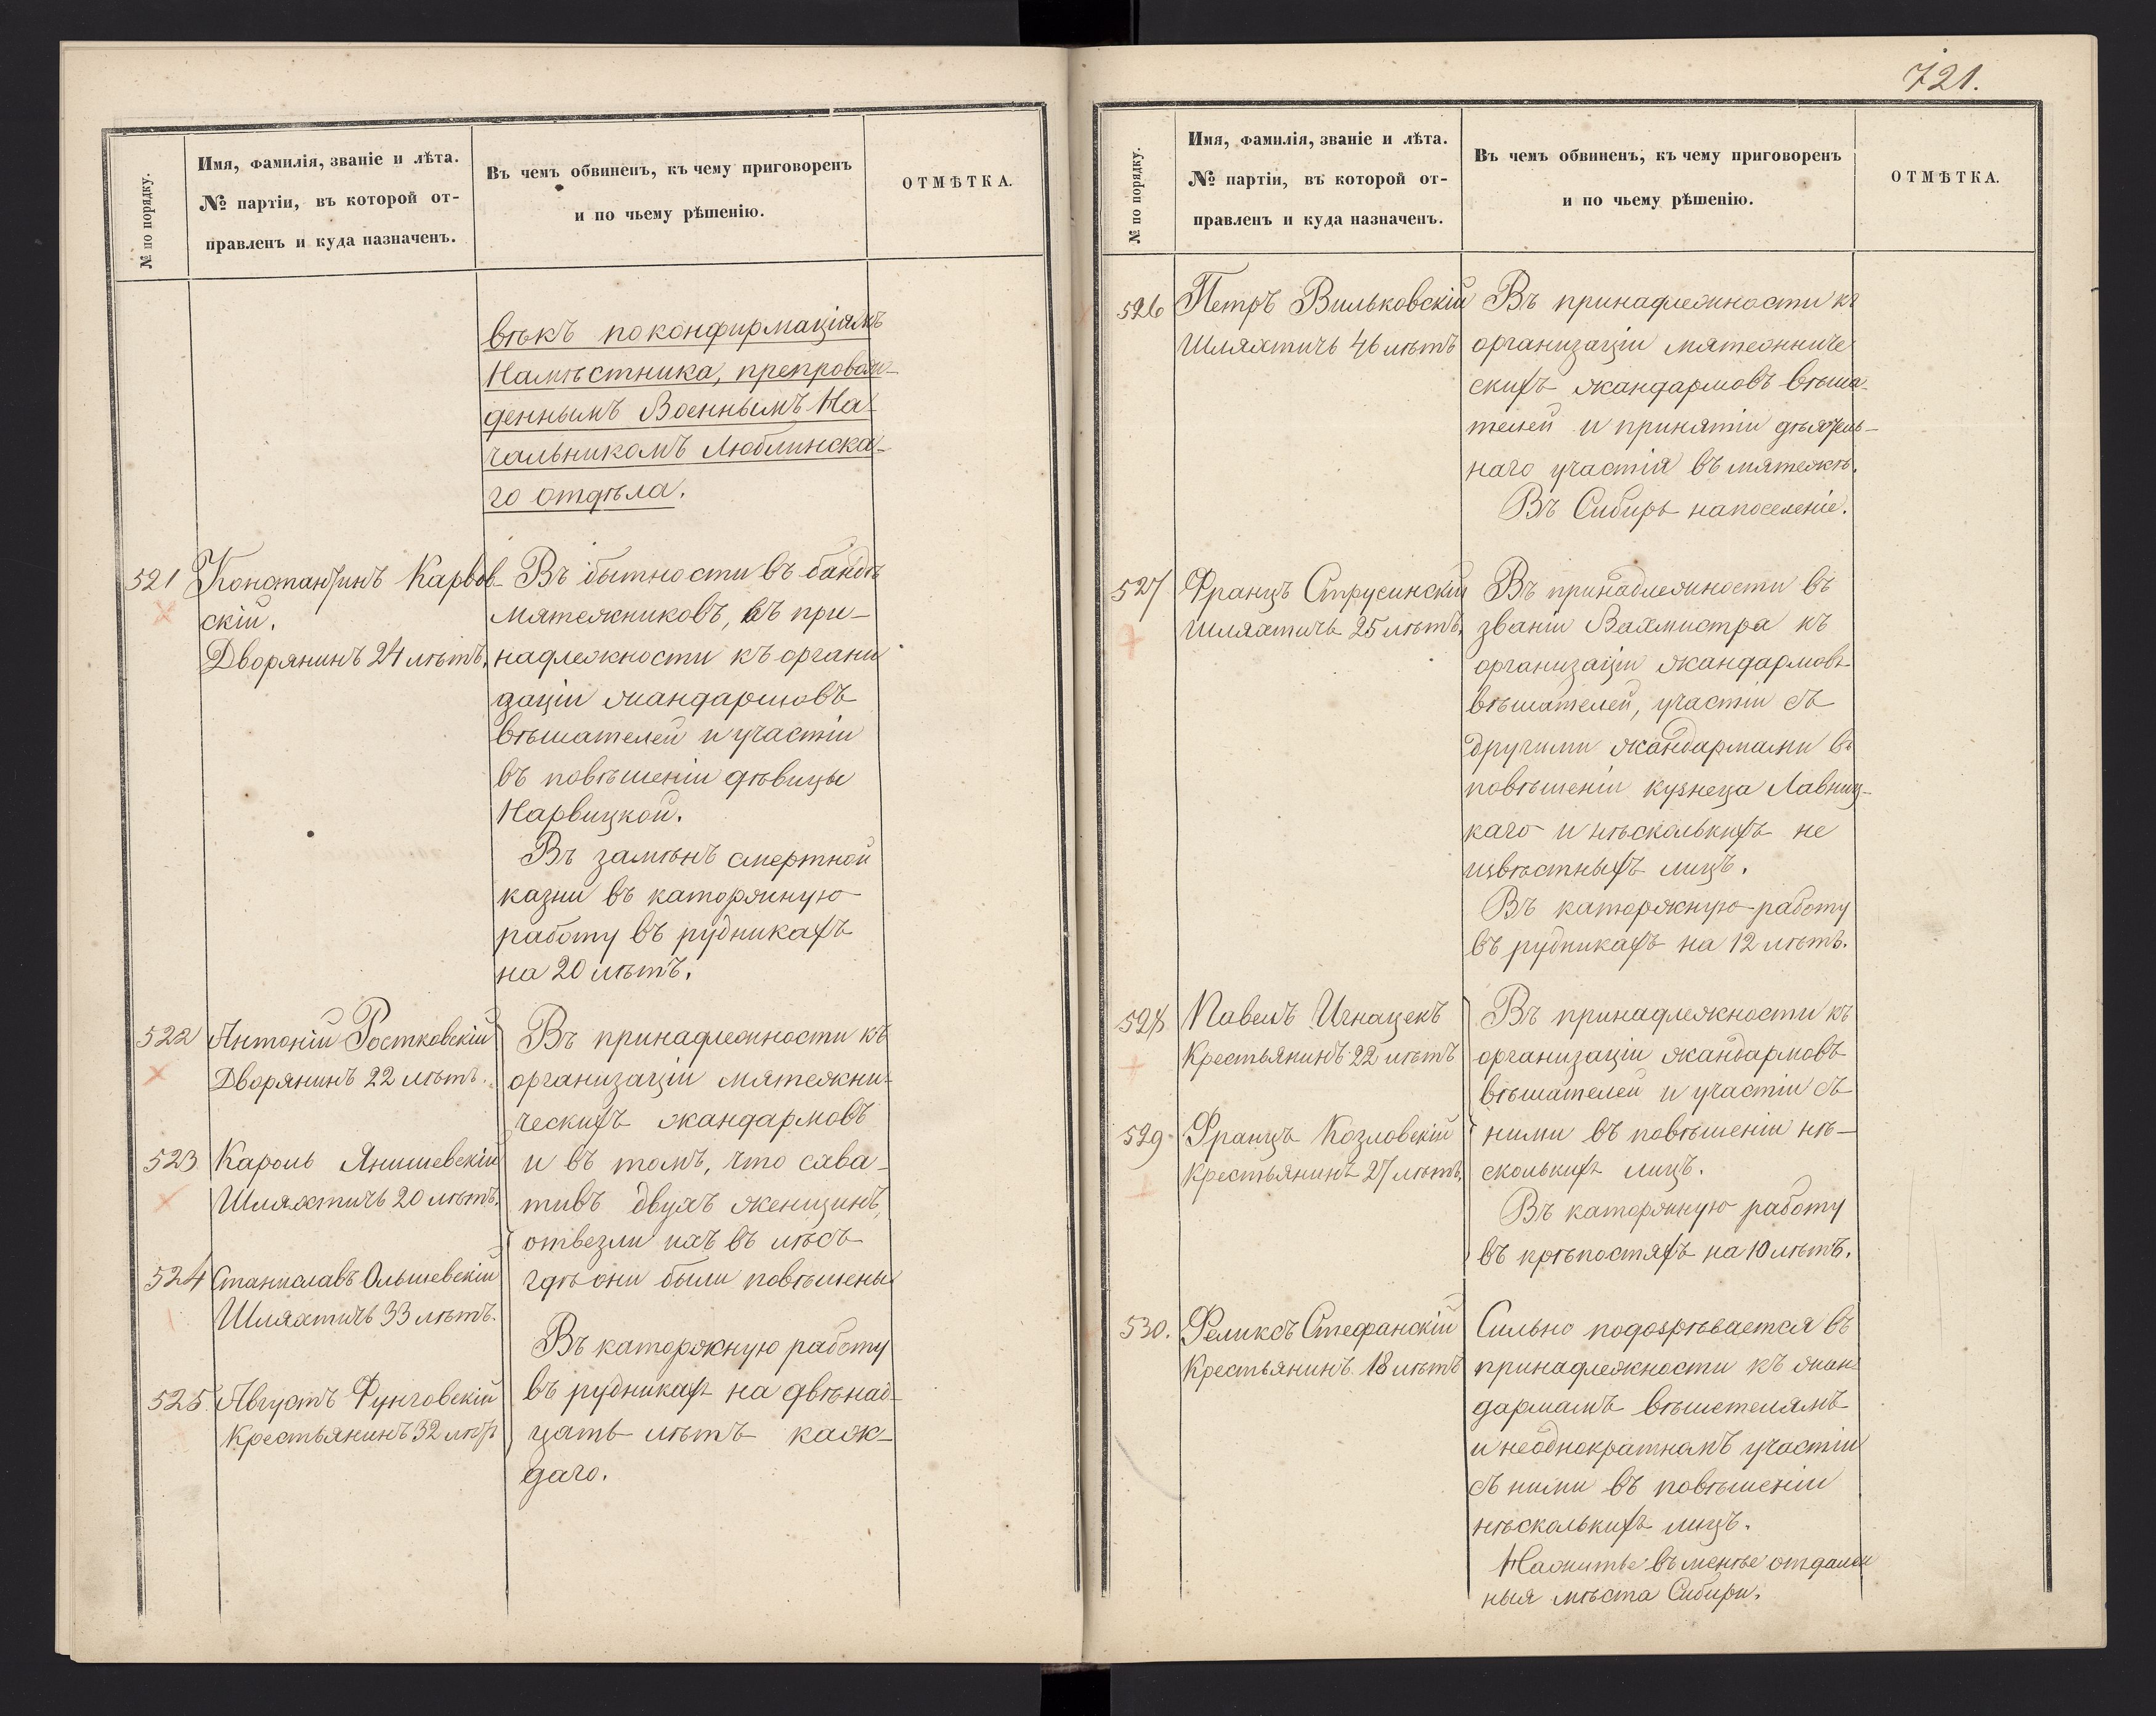 721.
№ по порядку.
Имя, фамилія, званіе и лѣта.
№ партіи, въ которой от-
правленъ и куда назначенъ.
Въ чемъ обвиненъ, къ чему приговоренъ
и по чьему рѣшенію.
ОТМѢТКА.
вѣкъ по конфирмаціямъ
Намѣстника, препровож-
деннымъ Военнымъ На-
чальникомъ Люблинска-
го отдѣла.
521 Константинъ Карвов-
скій.
Дворянинъ 24 лѣтъ.
Въ бытности въ бандѣ
мятежниковъ, въ при-
надлежности къ органи
заціи жандармовъ
вѣшателей и участіи
въ повѣшеніи дѣвицы
Нарвицкой.
Въ замѣнъ смертной
казни въ каторжную
работу въ рудникахъ
на 20 лѣтъ.
522 Антоній Ростковскій
Дворянинъ 22 лѣтъ.
523 Кароль Янишевскій
Шляхтичъ 20 лѣтъ.
524 Станиславъ Ольшевскій
Шляхтичъ 33 лѣтъ.
525. Августъ Фунговскій
Крестьянинъ 32 лѣтъ
Въ принадлежности къ
организаціи мятежни-
ческихъ жандармовъ
и въ томъ, что схва-
тивъ двухъ женщинъ,
отвезли ихъ въ лѣсъ
гдѣ они были повѣшены
Въ каторжную работу
въ рудникахъ на двѣнад-
цать лѣтъ каж-
даго.
№ по порядку.
Имя, фамилія, званіе и лѣта.
№ партіи, въ которой от-
правленъ и куда назначенъ.
Въ чемъ обвиненъ, къ чему приговоренъ
и по чьему рѣшенію.
ОТМѢТКА.
526 Петръ Вильковскій
Шляхтичъ 46 лѣтъ
Въ принадлежности къ
организаціи мятежниче
скихъ жандармовъ вѣша-
телей и принятіи дѣятель-
наго участія въ мятежѣ.
Въ Сибирь на поселеніе.
527 Францъ Струсинскій
Шляхтичъ 25 лѣтъ.
Въ принадлежности въ
званіи Вахмистра къ
организаціи жандармовъ
вѣшателей, участіи съ
другими жандармами въ
повѣшеніи кузнеца Лавниц-
каго и нѣсколькихъ не
извѣстныхъ лицъ.
Въ каторжную работу
въ рудникахъ на 12 лѣтъ.
528 Павелъ Игнацекъ
Крестьянинъ 22 лѣтъ
529 Францъ Козловскій
Крестьянинъ 27 лѣтъ.
Въ принадлежности къ
организаціи жандармовъ
вѣшателей и участіи съ
ними въ повѣшеніи нѣ-
сколькихъ лицъ.
Въ каторжную работу
въ крѣпостяхъ на 10 лѣтъ.
530. Феликсъ Стефанскій
Крестьянинъ 18 лѣтъ
Сильно подозрѣвается въ
принадлежности къ жан
дармамъ вѣшетелямъ
и неоднократномъ участіи
съ ними въ повѣшеніи
нѣсколькихъ лицъ.
На житье въ менѣе отдален
ныя мѣста Сибири.